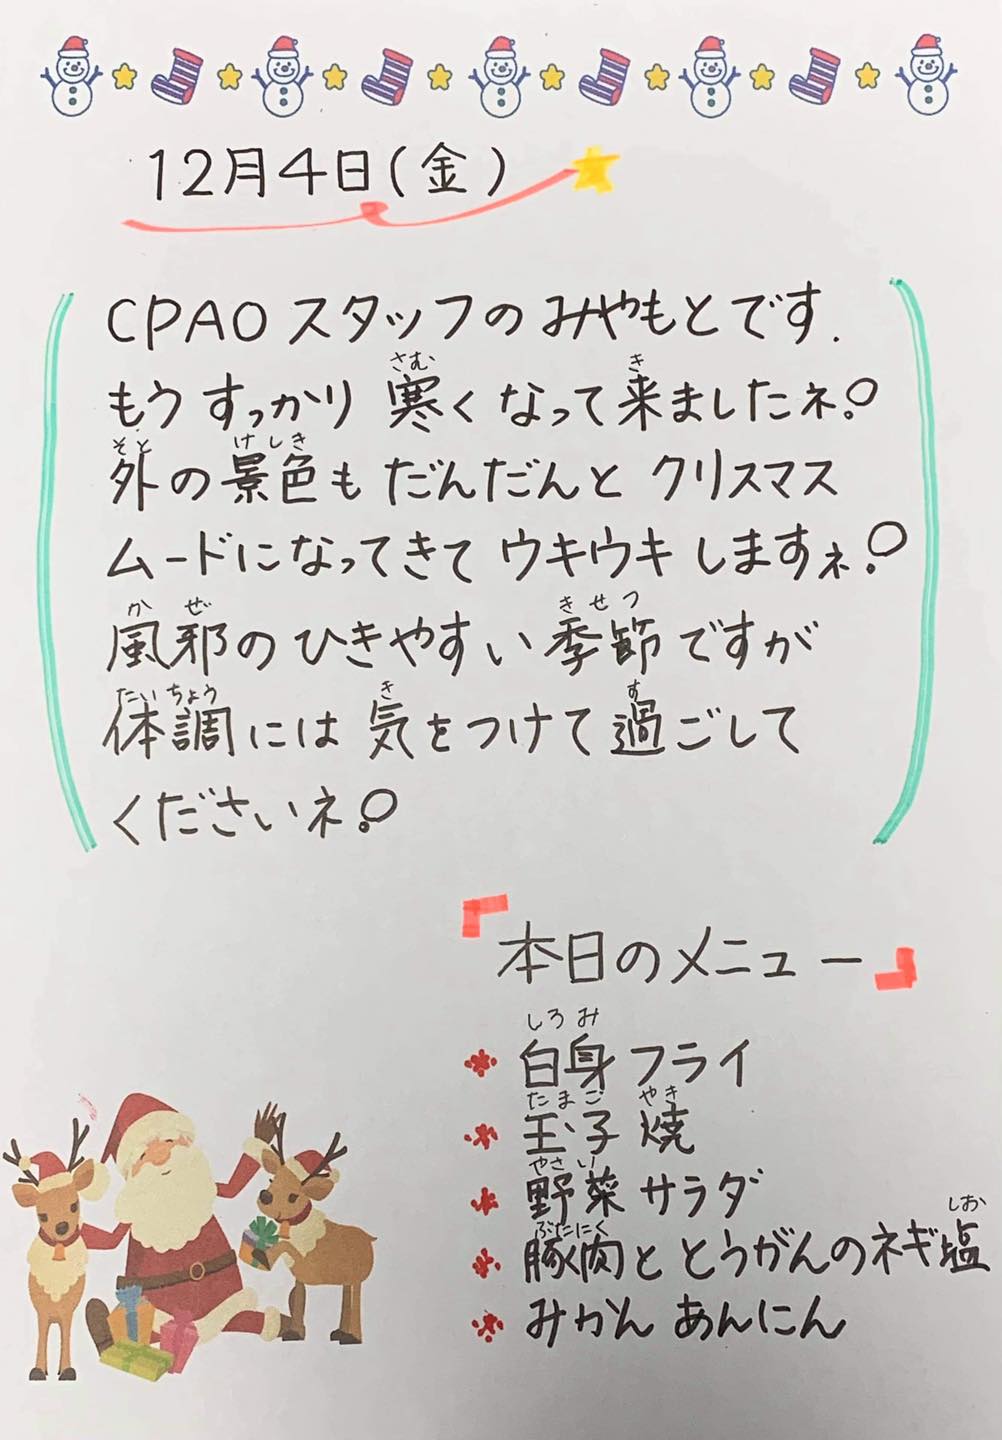 12月4日(金)
CPAO スタッフのみやもとです.
さむ き
もうすっかり 寒くなって来ましたネ!
そと けしき
外の景色も だんだんと クリスマス
ムードになってきて ウキウキ しますネ!
かぜ きせつ
風邪のひきやすい 季節ですが
たいちょう き す
体調には 気をつけて 過ごして
くださいネ!
『本日のメニュー』
しろみ
白身フライ
たまご やき
玉子 焼
やさい
野菜 サラダ
ぶたにく しお
豚肉と とうがんのネギ塩
みかん あんにん